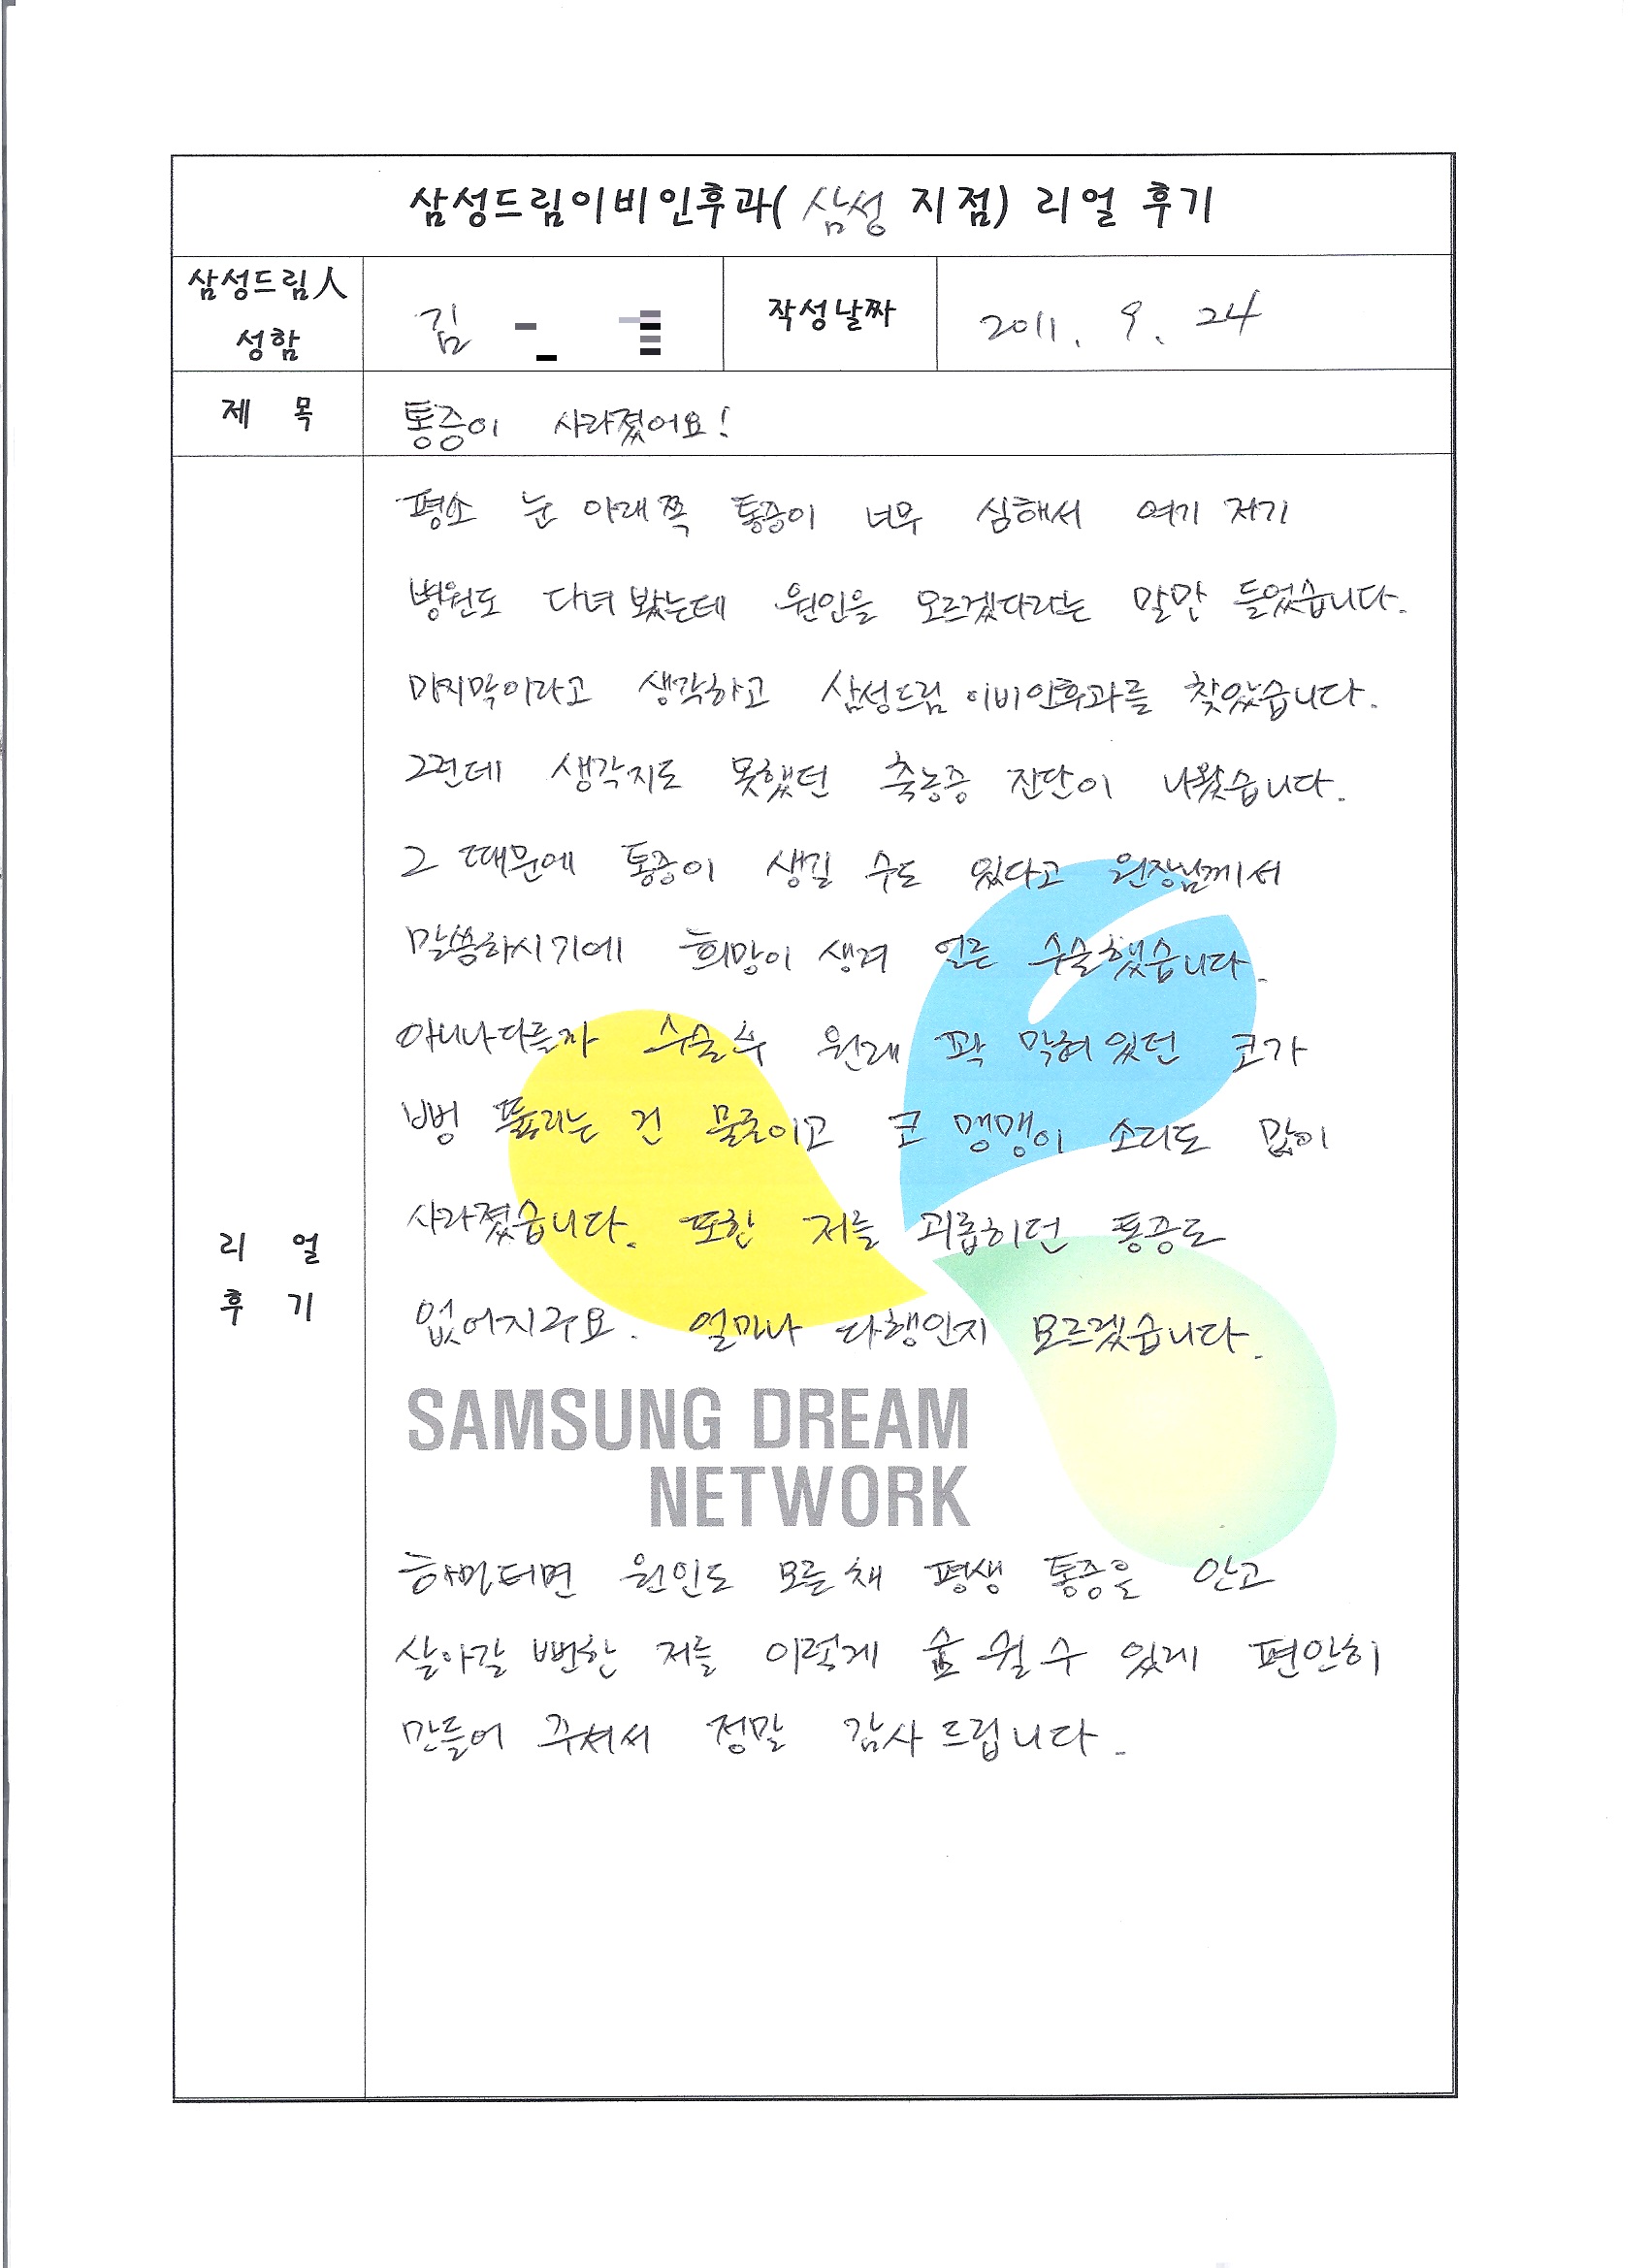 삼성드림이비인후과( 삼성 지점) 리얼 후기
삼성드림人
성함
김
작성날짜
2011. 9. 24
제 목
통증이 사라졌어요!
평소 눈 아래쪽 통증이 너무 심해서 여기 저기
병원도 다녀 봤는데 원인을 모르겠다라는 말만 들었습니다.
마지막이라고 생각하고 삼성드림 이비인후과를 찾았습니다.
그런데 생각지도 못했던 축농증 진단이 나왔습니다.
그 때문에 통증이 생길 수도 있다고 원장님께서
말씀하시기에 희망이 생겨 얼른 수술했습니다.
아니나다를까 수술 후 원래 꽉 막혀 있던 코가
뻥 뚫리는 건 물론이고 코 맹맹이 소리도 많이
사라졌습니다. 또한 저를 괴롭히던 통증도
없어지구요. 얼마나 다행인지 모르겠습니다.
리 얼
후 기
SAMSUNG DREAM
NETWORK
하마터면 원인도 모를 채 평생 통증을 안고
살아갈 뻔한 저를 이렇게 숨 쉴 수 있게 편안히
만들어 주셔서 정말 감사드립니다.